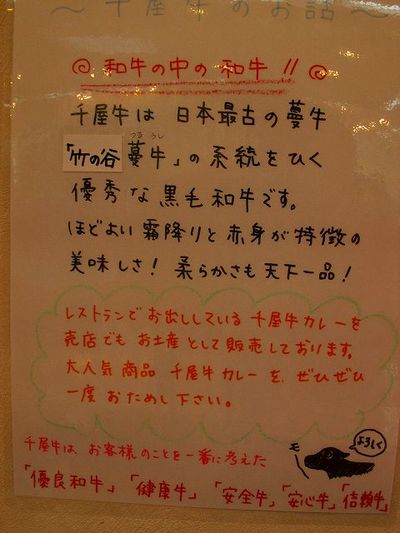 〜千屋牛のお話〜
和牛の中の和牛!!
千屋牛は 日本最古の蔓牛
つる うし
「竹の谷 蔓牛」の系統をひく
優秀な黒毛和牛です。
ほどよい霜降りと赤身が特徴の
美味しさ! 柔らかさも天下一品!
レストランでお出ししている千屋牛カレーを
売店でも お土産として販売しております。
大人気商品 千屋牛カレーを、ぜひぜひ
一度 おためし下さい。
千屋牛は、お客様のことを一番に考えた
モ〜
よろしく
「優良和牛」「健康牛」「安全牛」「安心牛」「信頼牛」